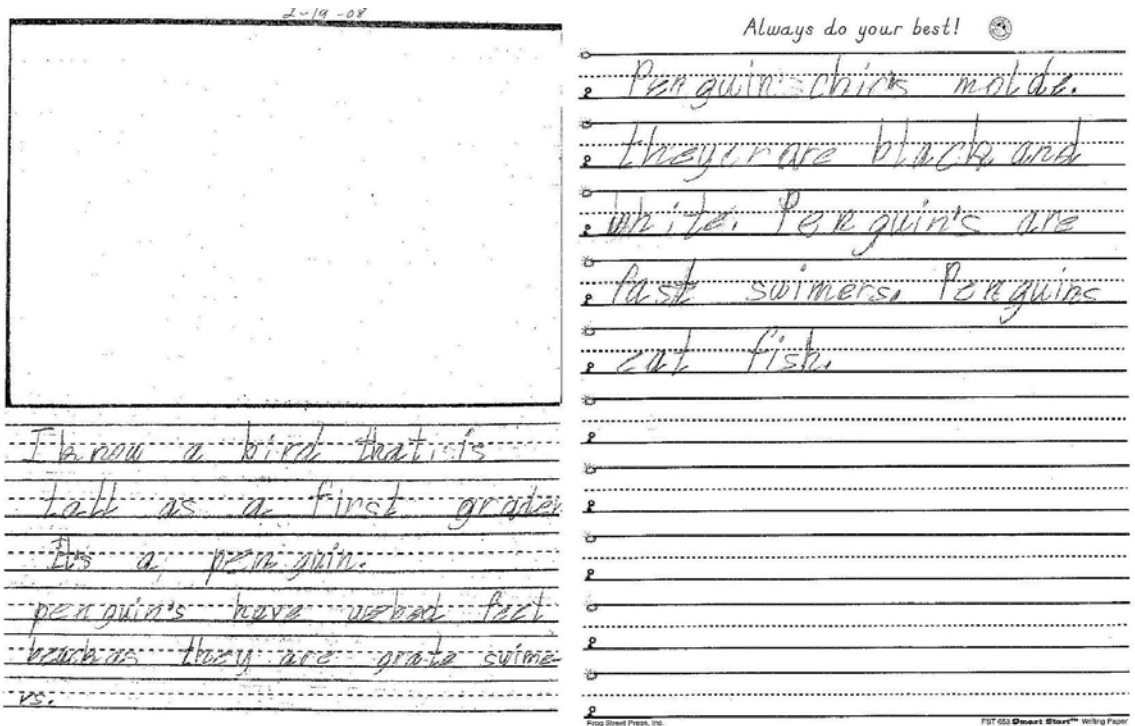 2-19-08
I know a bird that is
tall as a first grader
It's a penguin.
penguin's have webed feet
they are grate swime-
rs.
Always do your best!
Penguin's chicks molde.
are black and
white. Penguin's are
fast swimers. Penguins
eat fish.
Frog Street Press, Inc.
FST 653 Smart Start™ Writing Paper